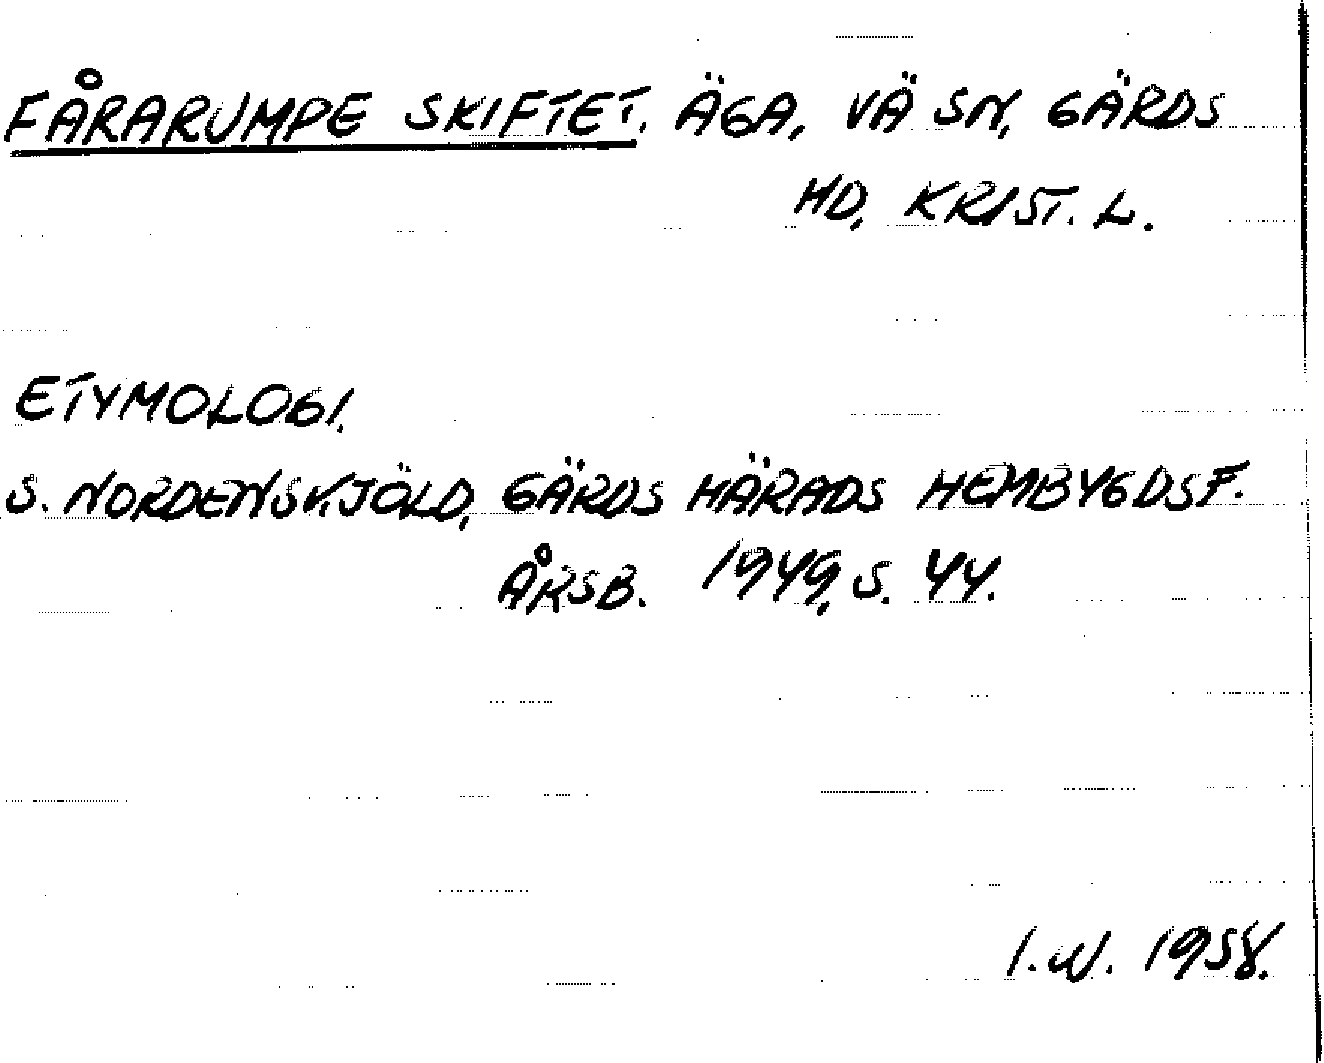 FÅRARUMPE SKIFTET. ÄGA, VÄ SN, GÄRDS
HD, KRIST. L.
ETYMOLOGI.
S. NORDENSKJÖLD, GÄRDS HÄRADS HEMBYGDSF.
ÅRSB. 1949, S. 44.
I.W. 1958.